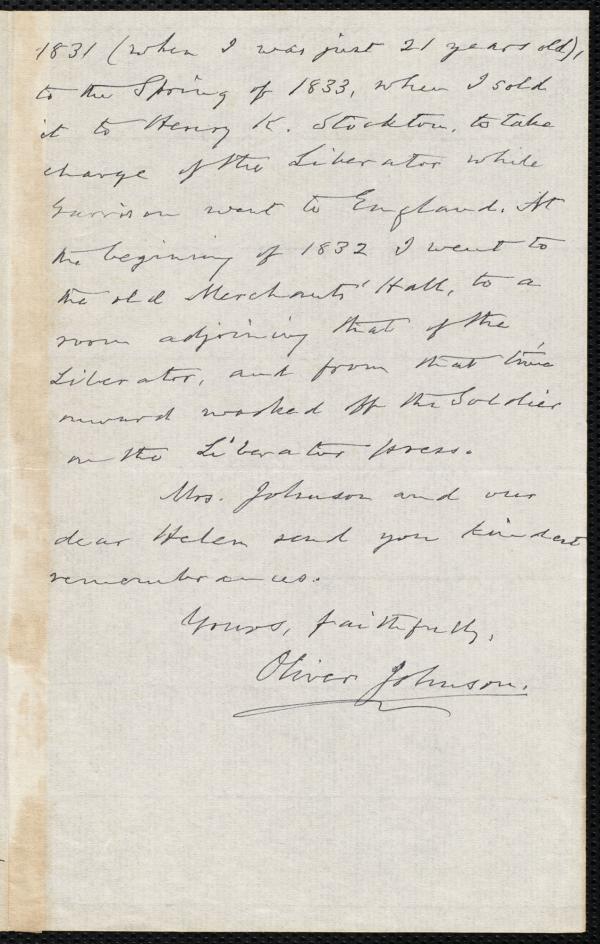 1831 (when I was just 21 years old),
to the Spring of 1833, when I sold
it to Henry K. Stockton, to take
charge of the Liberator while
Garrison went to England. At
the beginning of 1832 I went to
the old Merchants' Hall, to a
room adjoining that of the
Liberator, and from that time
onward worked off the Soldier
on the Liberator press.
Mrs. Johnson and our
dear Helen send you kindest
remembrances.
Yours, faithfully,
Oliver Johnson.